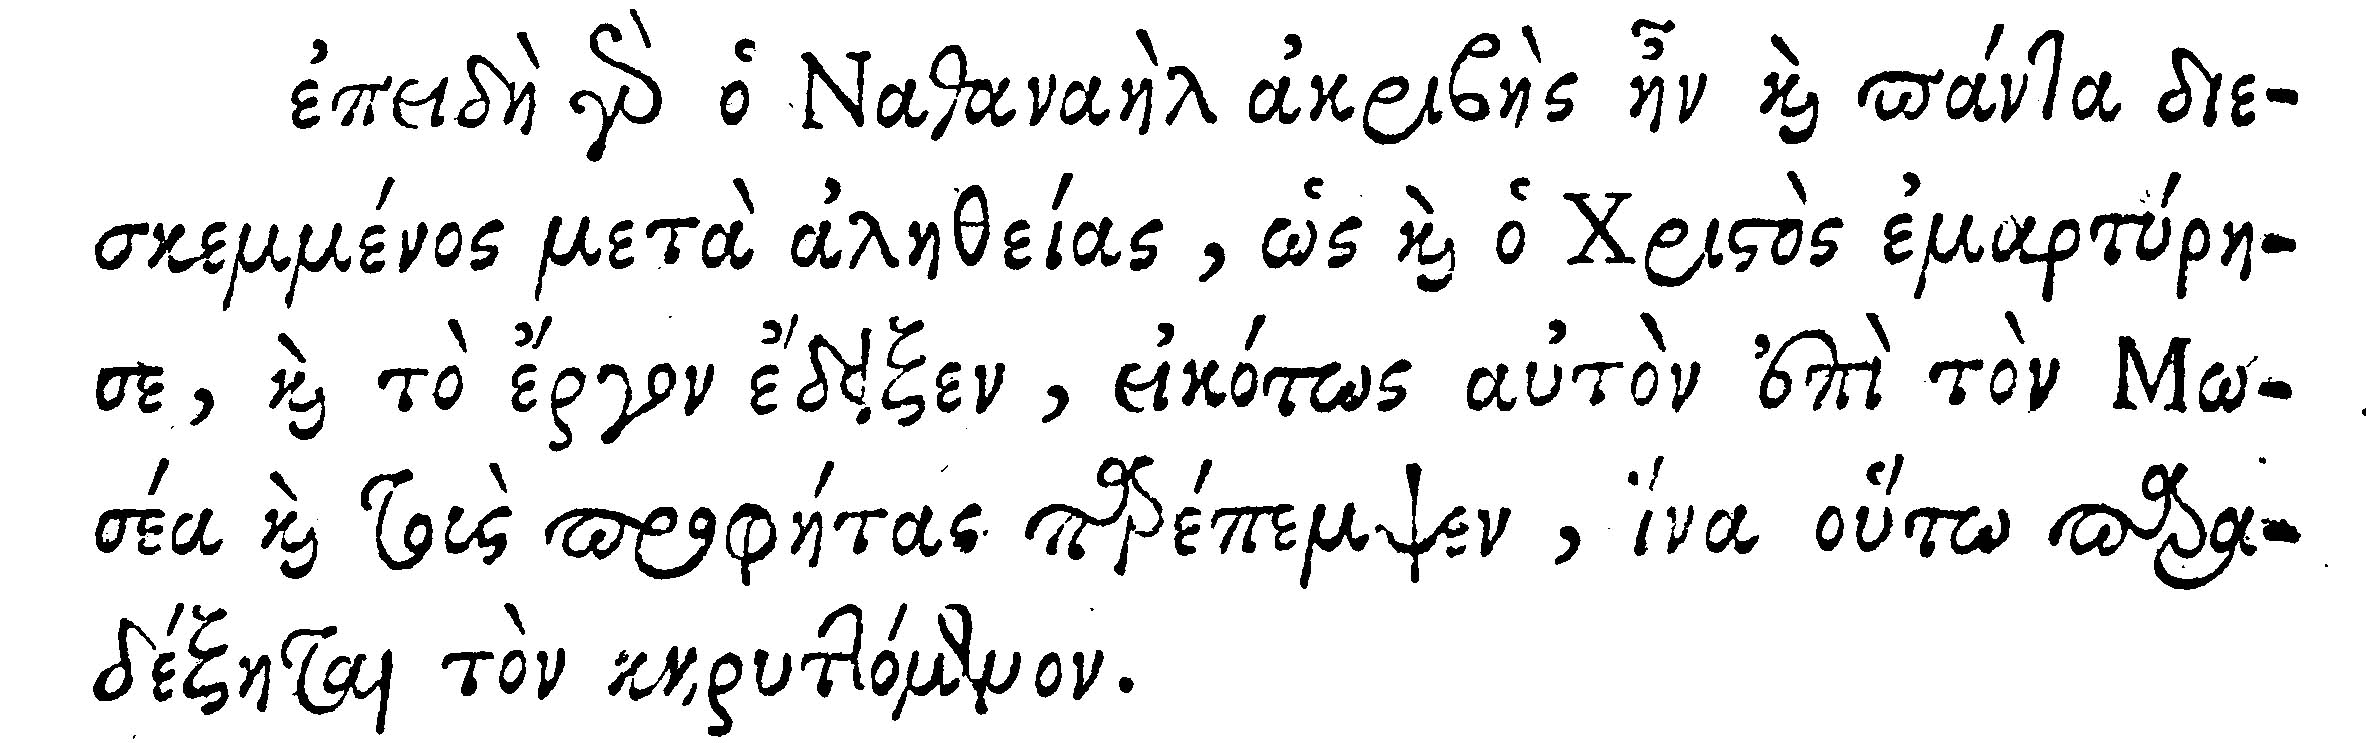 ἐπειδὴ γὰρ ὁ Ναθαναὴλ ἀκριβὴς ἦν καὶ πάντα διε-
σκεμμένος μετὰ ἀληθείας, ὡς καὶ ὁ Χριστὸς ἐμαρτύρη-
σε, καὶ τὸ ἔργον ἔδειξεν, εἰκότως αὐτὸν ἐπὶ τὸν Μω-
σέα καὶ τοὺς προφήτας παρέπεμψεν, ἵνα οὕτω παρα-
δέξηται τὸν κηρυττόμενον.